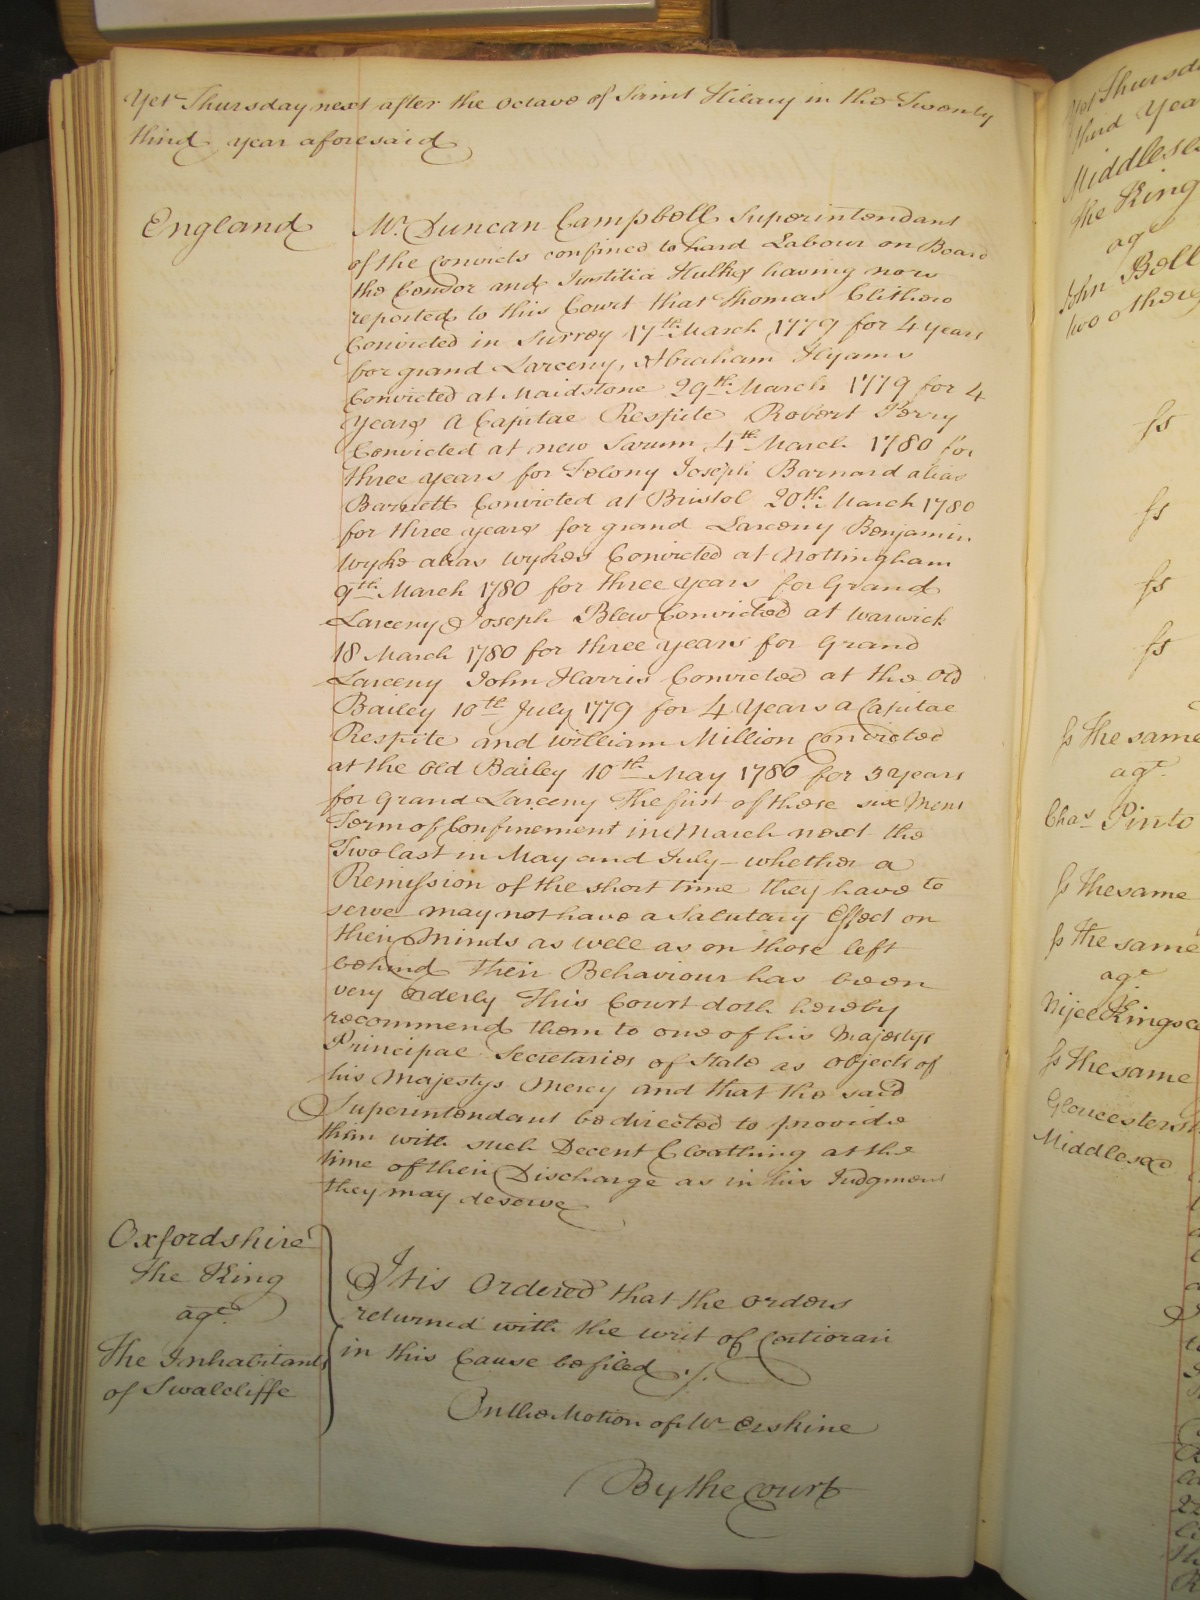 Yet Thursday next after the Octave of Saint Hilary in the Twenty
third year aforesaid
England
Mr. Duncan Campbell Superintendant
of the Convicts confined to hard Labour on Board
the Cendor and Justitia Hulks having now
reported to this Court that Thomas Clitherow
Convicted in Surrey 17th March 1779 for 4 years
for grand Larceny, Abraham Hyams
Convicted at Maidstone 29th March 1779 for 4
Years A Capital Respite Robert Perry
Convicted at new Sarum 4th March 1780 for
three years for Felony Joseph Barnard alias
Barnett Convicted at Bristol 20th March 1780
for three years for grand Larceny Benjamin
Wyke alias Wykes Convicted at Nottingham
9th March 1780 for three years for Grand
Larceny Joseph Blew Convicted at Warwick
18 March 1780 for three years for Grand
Larceny John Harris Convicted at the Old
Bailey 10th July 1779 for 4 Years a Capital
Respite and William Million Convicted
at the Old Bailey 10th May 1780 for 3 years
for Grand Larceny The first of those six Mens
Term of Confinement in March next the
Two last in May and July - whether a
Remission of the short time they have to
serve may not have a Salutary Effect on
their Minds as well as on those left
behind Their Behaviour has been
very Orderly This Court doth hereby
recommend them to one of his Majestys
Principal Secretaries of State as Objects of
his Majestys Mercy and that the said
Superintendant be directed to provide
them with such Decent Cloathing at the
time of their Discharge as in his Judgment
they may deserve
Oxfordshire
The King
agt.
The Inhabitants
of Swalcliffe
It is Ordered that the orders
returned with the writ of Certiorari
in this Cause be filed
On the Motion of Mr Erskine
By the Court
Yet Thursd
third Yea
Middlesex
The King
agt
John Bell
two others
ss
ss
ss
ss
ss The same
agt.
Chas Pinto
ss The same
ss The same
agt.
ss The same
Middlesex